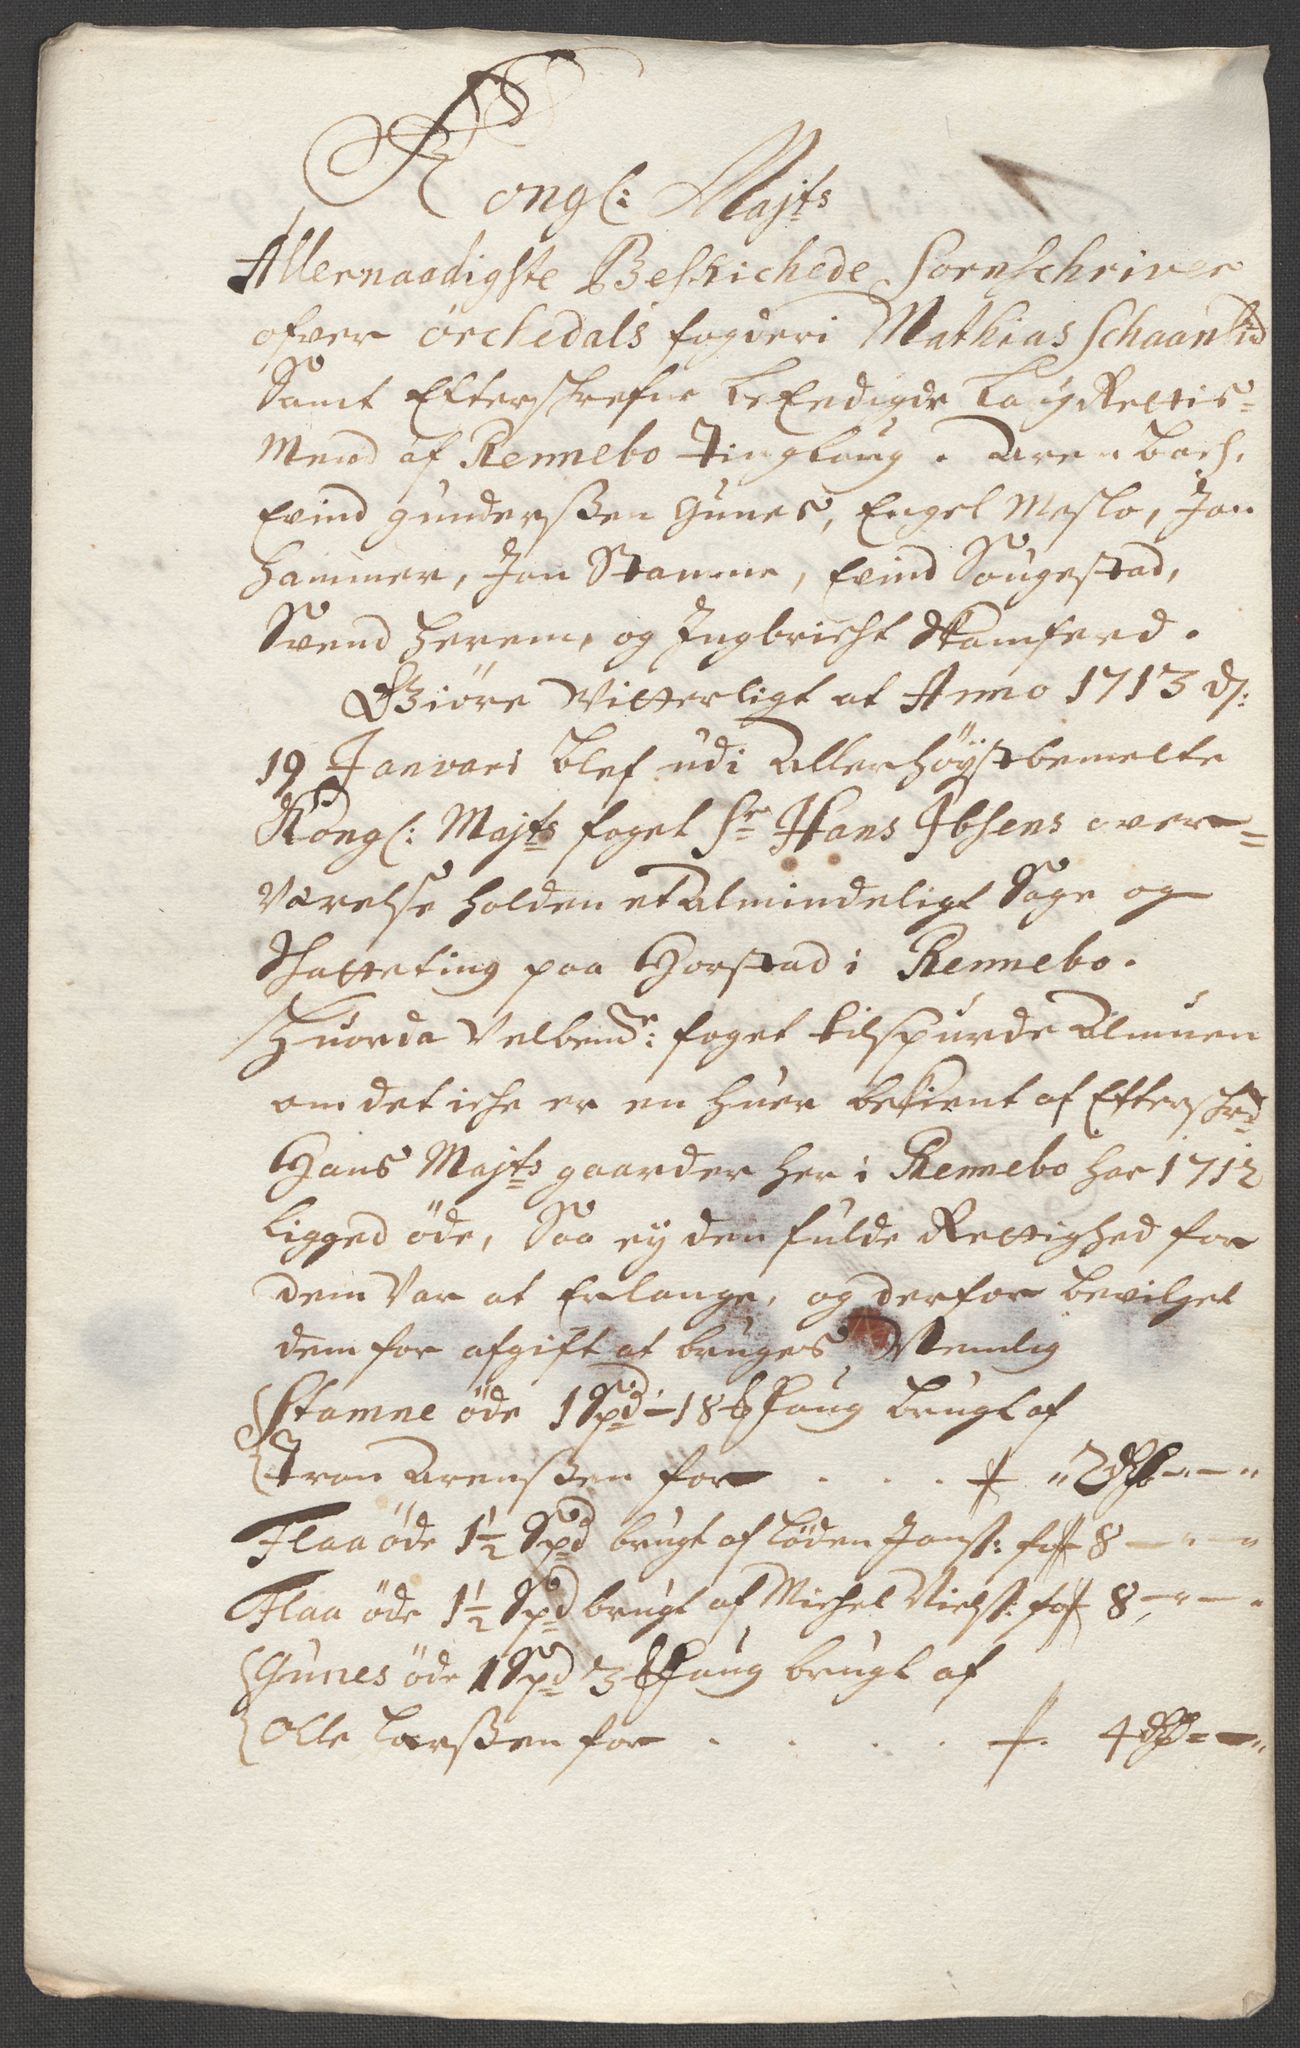 Kongl: Majts
Allernaadigste Beskichede Sorenschriver
ofver örchedals fogderi Mathias Schaanlid
Samt Efterskrefne beEdigde LaugRettis=
Mend af Rennebo Tinglaug. Aren bach,
Evind gunderßen Gunes, Engel Meslo, Jon
hammer, Jon Stamne, Evind Sougestad,
Svend herrem, og Ingbricht Skamferd.
Giöre Vitterligt at Anno 1713 d:
19 Janvari blef udi Allerhöystbemelte
Kongl: Majts foget Sr Hans Ibsens over=
Værelse holden et Almindeligt Sage og
Skatteting paa Horstad i Rennebo.
Huorda Velbemte: foget tilspurde Almuen
om det iche er en huer bekient at Efterskrd
Hans Majts gaarder her i Rennebo har 1712
ligged öde, Saa ey den fulde Rettighed for
dem Var at Erlange, og derfor bevilget
dem for afgift at bruges, Nemlig
Stamne öde 1 Spd - 18 Mkl aug brugt af
Tron Arenßen for . . . . 2 rd - -
Flaa öde 1½ Spd brugt af löden Jonß: for 8 - -
Flaa öde 1½ Spd brugt af Michel Nielß: for 8 - -
Gunes öde 1 Spd 3 Mkl aug brugt af
Olle Larßen for . . . . . 4 rd - -